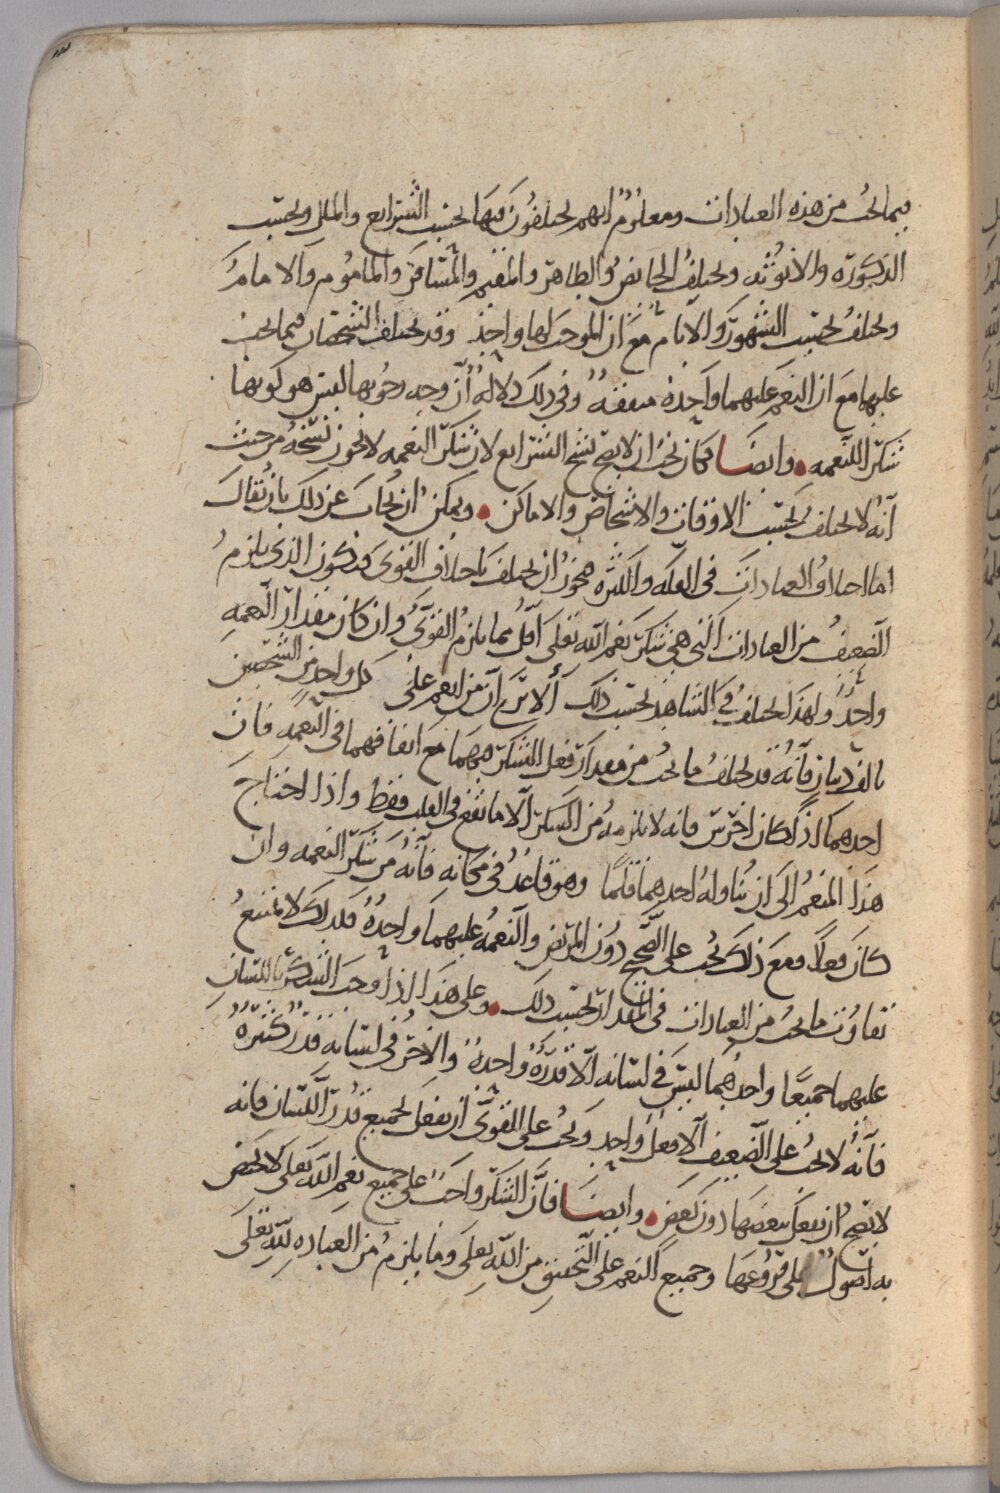 فيما يجب من هذه العبادات ومعلوم انهم يختلفون فيها بحسب الشرايع والملل وبحسب
الذكورة والانوثه ويختلف الحايض والطاهر والمقيم والمسافر والماموم والامام
ويختلف بحسب الشهور والايام مع ان الموجب لها واحد وقد يختلف الشخصان فيما يجب
عليهما مع ان النعم عليهما واحدة متفقة وفى ذلك دلالة ان وجه وجوبها ليس هو كونها
شكرا للنعمه وايضا فكان يجب ان لا يصح نسخ الشرايع لان شكر النعمه لا يجوز نسخه من حيث
انه لا يختلف بحسب الاوقات والاشخاص والاماكن ويمكن ان يجاب عن ذلك بان يقال
اما اختلاف العبادات فى القله والكثره فيجوز ان يختلف باختلاف القوى فتكون الذى يلزم
الضعيف من العبادات التى هى شكر نعم الله تعلى اقل مما يلزم القوى وان كان مقدار النعمه
واحدا ولهذا يختلف فى الشاهد بحسب ذلك الا ترى ان من انعم على كل واحد من الشخصين
بالف دينار فانه قد يختلف ما يجب من مقدار فعل الشكر منهما مع اتفاقهما فى النعمه فان
احدهما اذا كان اخرس فانه لا يلزمه من الشكر الا ما يقع فى القلب فقط واذا احتاج
هذا المنعم الى ان يناوله احدهما قلما وهو قاعد فى مكانه فانه من شكر النعمه وان
كان فعلا فمع ذلك يجب على الصحيح دون المريض والنعمه عليهما واحدة فلذلك لا يمتنع
تفاوت ما يجب من العبادات فى المقدار بحسب ذلك وعلى هذا اذا وجب الشكر باللسان
عليهما جميعا واحدهما ليس فى لسانه الا قدرة واحدة والاخر فى لسانه قدر كثيرة
فانه لا يجب على الضعيف الا فعل واحد ويجب على القوى ان يفعل بجميع قدر اللسان فانه
لا يصح ان يفعل ببعضها دون بعض وايضا فان الشكر واجب على جميع نعم الله تعلى لا يختص
به اصول على فروعها وجميع النعم على التحقيق من الله تعلى وما يلزم من العباده لله تعلى